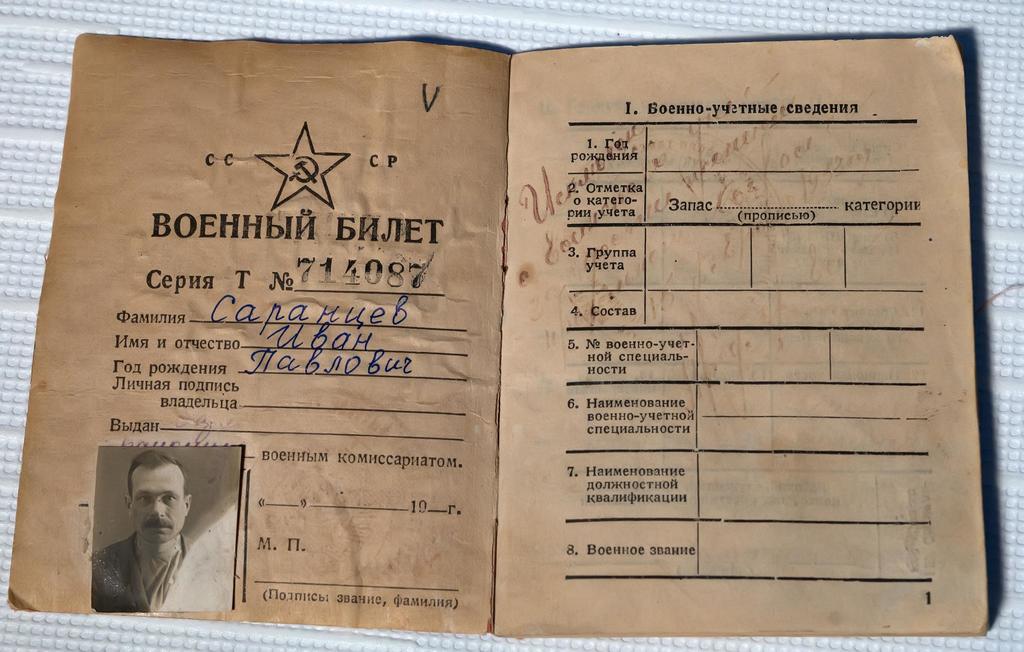 V
СС СР
ВОЕННЫЙ БИЛЕТ
Серия Т № 714087
Фамилия Саранцев
Имя и отчество Иван
Год рождения Павлович
Личная подпись
владельца
Выдан
военным комиссариатом.
« » 19 г.
М. П.
(Подпись, звание, фамилия)
I. Военно-учетные сведения
1. Год
рождения
2. Отметка
о катего-
рии учета
Запас категории
(прописью)
3. Группа
учета
4. Состав
5. № военно-учет-
ной специаль-
ности
6. Наименование
военно-учетной
специальности
7. Наименование
должностной
квалификации
8. Военное звание
1